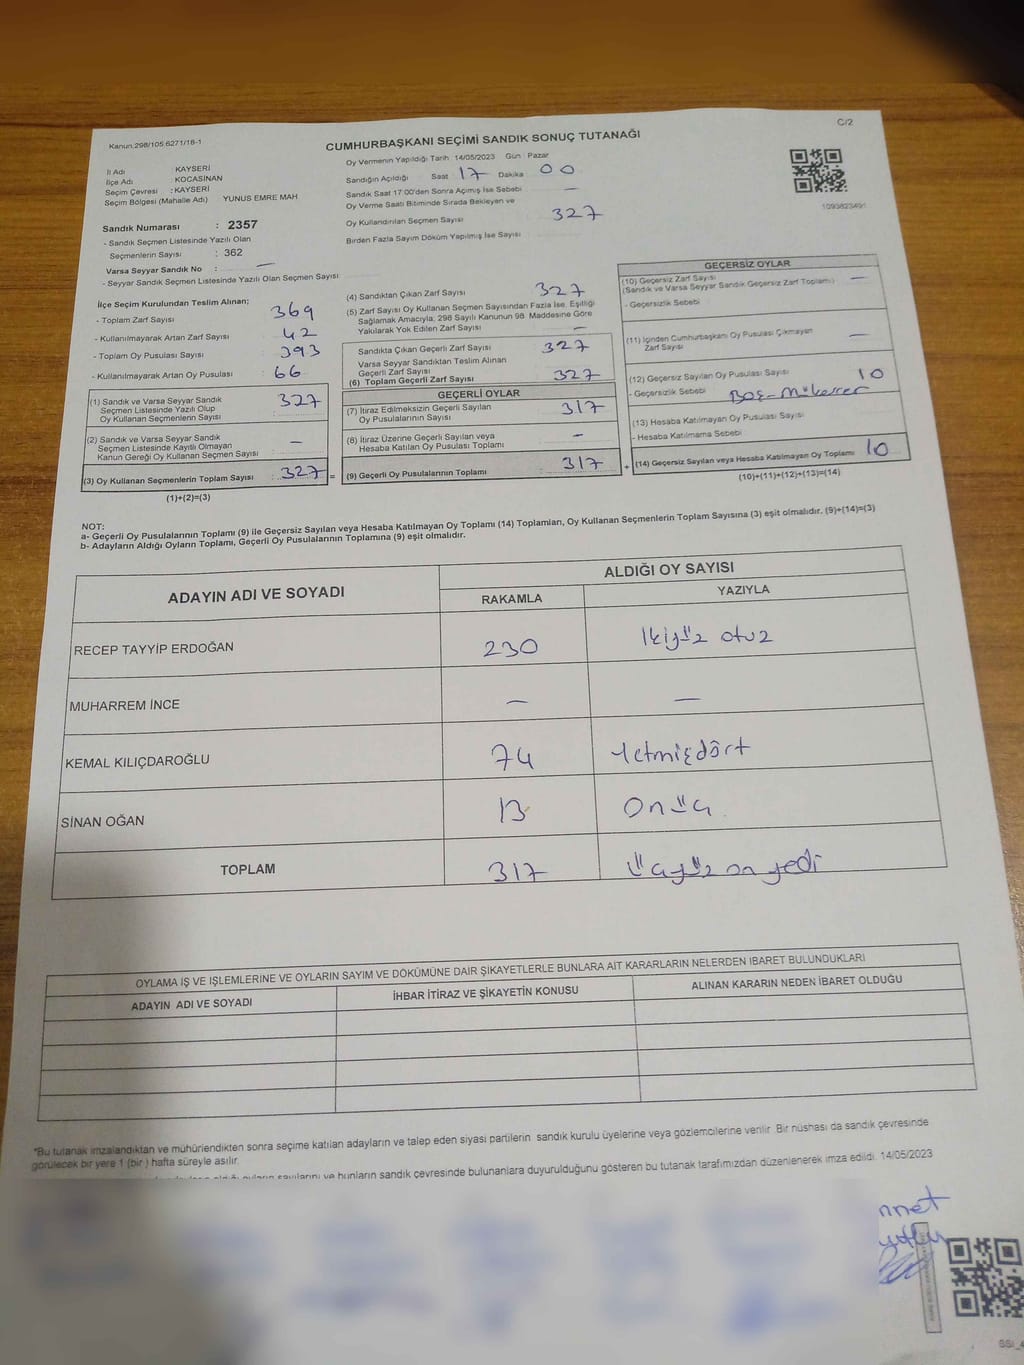 Kanun:298/105;6271/18-1
C/2
CUMHURBAŞKANI SEÇİMİ SANDIK SONUÇ TUTANAĞI
İl Adı : KAYSERİ
İlçe Adı : KOCASİNAN
Seçim Çevresi : KAYSERİ
Seçim Bölgesi (Mahalle Adı) YUNUS EMRE MAH
Sandık Numarası : 2357
- Sandık Seçmen Listesinde Yazılı Olan
Seçmenlerin Sayısı : 362
Varsa Seyyar Sandık No : —
- Seyyar Sandık Seçmen Listesinde Yazılı Olan Seçmen Sayısı
Oy Vermenin Yapıldığı Tarih 14/05/2023 Gün : Pazar
Sandığın Açıldığı Saat 17 Dakika 00
Sandık Saat 17:00'den Sonra Açımış İse Sebebi —
Oy Verme Saati Bitiminde Sırada Bekleyen ve
Oy Kullandırılan Seçmen Sayısı 327
Birden Fazla Sayım Döküm Yapılmış İse Sayısı
1093823491
İlçe Seçim Kurulundan Teslim Alınan;
- Toplam Zarf Sayısı 369
- Kullanılmayarak Artan Zarf Sayısı 42
- Toplam Oy Pusulası Sayısı 393
- Kullanılmayarak Artan Oy Pusulası 66
(1) Sandık ve Varsa Seyyar Sandık
Seçmen Listesinde Yazılı Olup
Oy Kullanan Seçmenlerin Sayısı 327
(2) Sandık ve Varsa Seyyar Sandık
Seçmen Listesinde Kayıtlı Olmayan
Kanun Gereği Oy Kullanan Seçmen Sayısı —
(3) Oy Kullanan Seçmenlerin Toplam Sayısı 327 =
(1)+(2)=(3)
(4) Sandıktan Çıkan Zarf Sayısı 327
(5) Zarf Sayısı Oy Kullanan Seçmen Sayısından Fazla İse, Eşitliği
Sağlamak Amacıyla; 298 Sayılı Kanunun 98. Maddesine Göre
Yakılarak Yok Edilen Zarf Sayısı —
Sandıkta Çıkan Geçerli Zarf Sayısı 327
Varsa Seyyar Sandıktan Teslim Alınan
Geçerli Zarf Sayısı
(6) Toplam Geçerli Zarf Sayısı 327
GEÇERLİ OYLAR
(7) İtiraz Edilmeksizin Geçerli Sayılan
Oy Pusulalarının Sayısı 317
(8) İtiraz Üzerine Geçerli Sayılan veya
Hesaba Katılan Oy Pusulası Toplamı —
(9) Geçerli Oy Pusulalarının Toplamı 317 +
GEÇERSİZ OYLAR
(10) Geçersiz Zarf Sayısı —
(Sandık ve Varsa Seyyar Sandık Geçersiz Zarf Toplamı)
- Geçersizlik Sebebi
(11) İçinden Cumhurbaşkanı Oy Pusulası Çıkmayan
Zarf Sayısı —
(12) Geçersiz Sayılan Oy Pusulası Sayısı 10
- Geçersizlik Sebebi Boş-Mükerrer
(13) Hesaba Katılmayan Oy Pusulası Sayısı
- Hesaba Katılmama Sebebi
(14) Geçersiz Sayılan veya Hesaba Katılmayan Oy Toplamı 10
(10)+(11)+(12)+(13)=(14)
NOT:
a- Geçerli Oy Pusulalarının Toplamı (9) ile Geçersiz Sayılan veya Hesaba Katılmayan Oy Toplamı (14) Toplamları, Oy Kullanan Seçmenlerin Toplam Sayısına (3) eşit olmalıdır. (9)+(14)=(3)
b- Adayların Aldığı Oyların Toplamı, Geçerli Oy Pusulalarının Toplamına (9) eşit olmalıdır.
ADAYIN ADI VE SOYADI
ALDIĞI OY SAYISI
RAKAMLA YAZIYLA
RECEP TAYYİP ERDOĞAN 230 İkiyüz otuz
MUHARREM İNCE — —
KEMAL KILIÇDAROĞLU 74 Yetmişdört
SİNAN OĞAN 13 Onüç
TOPLAM 317 Üçyüz on yedi
OYLAMA İŞ VE İŞLEMLERİNE VE OYLARIN SAYIM VE DÖKÜMÜNE DAİR ŞİKAYETLERLE BUNLARA AİT KARARLARIN NELERDEN İBARET BULUNDUKLARI
ADAYIN ADI VE SOYADI İHBAR İTİRAZ VE ŞİKAYETİN KONUSU ALINAN KARARIN NEDEN İBARET OLDUĞU
*Bu tutanak imzalandıktan ve mühürlendikten sonra seçime katılan adayların ve talep eden siyasi partilerin sandık kurulu üyelerine veya gözlemcilerine verilir. Bir nüshası da sandık çevresinde
görülecek bir yere 1 (bir ) hafta süreyle asılır.
sayılarını ve bunların sandık çevresinde bulunanlara duyurulduğunu gösteren bu tutanak tarafımızdan düzenlenerek imza edildi. 14/05/2023
nnet